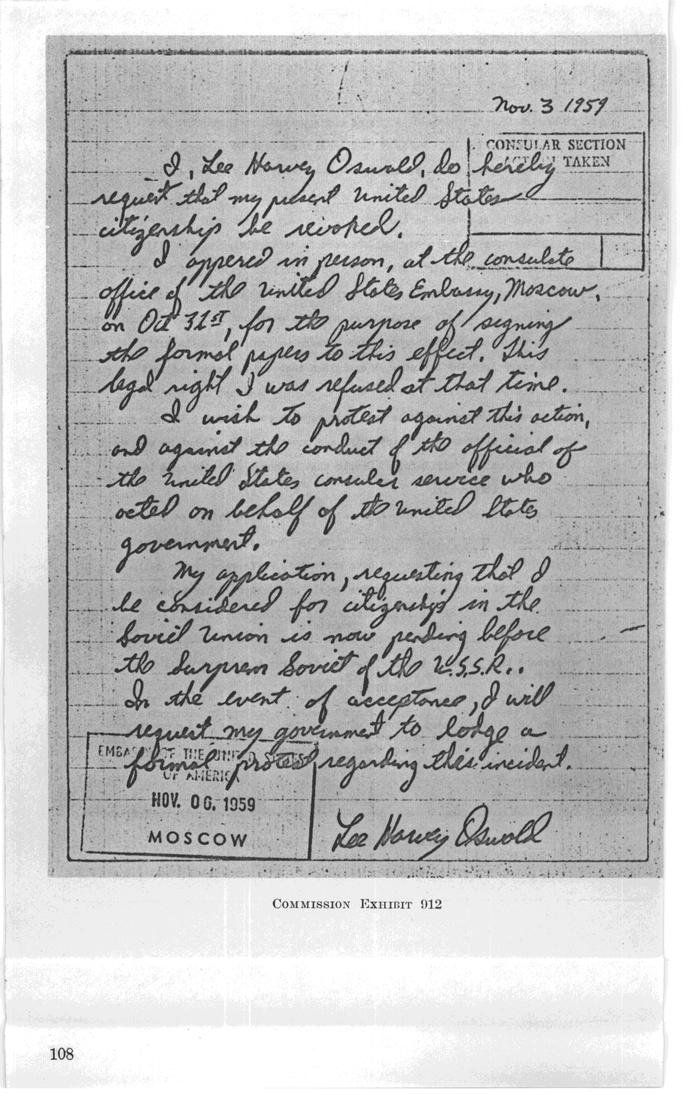 Nov. 3 1959
CONSULAR SECTION
ACTION TAKEN
I, Lee Harvey Oswald, do hereby
request that my present United States
citizenship be revoked.
I appered in person, at the consulate
office of the United States Embassy, Moscow,
on Oct 31st, for the purpose of signing
the formal papers to this effect. This
legal right I was refused at that time.
I wish to protest against this action,
and against the conduct of the official of
the United States consular service who
acted on behalf of the United States
government.
My application, requesting that I
be considered for citizenship in the
Soviet Union is now pending before
the Surprem Soviet of the U.S.S.R..
In the event of acceptance, I will
request my government to lodge a
formal protest regarding this incident.
EMBASSY OF THE UNITED STATES
OF AMERICA
NOV. 06, 1959
MOSCOW
Lee Harvey Oswald
COMMISSION EXHIBIT 912
108